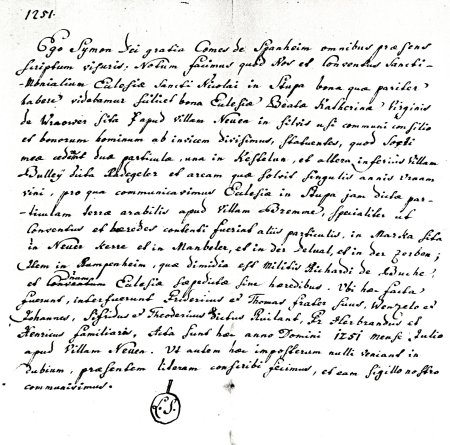 1251.
Ego Symon Dei gratia Comes de Spanheim omnibus præsens
scriptum visuris. Notum facimus quod Nos et Conventus Sancti-
-Monialium Eclesiæ Sancti Nicolai in Stupa bona quæ pariter
habere videbamur scilicet bona Eclesiæ Beatæ Katherinæ Virginis
de sita apud villam Neuen in silvis usi communi consilio
et bonorum hominum ab invicem divisimus, statuentes, quod Sorti
meæ duæ particulæ, una in et altera inferius villam
dicta Radegeler et aream quæ solvit singulis annis unam
vini, pro qua communicavimus Eclesiæ in Stupa jam dicta par-
-ticulam terræ arabilis apud villam specialiter ut
Conventus et hæredes contenti fuerint aliis particulis, in Marka sita
in Neuer et in Manbeler, et in der et in der Zerben;
Item in Rumpenheim, quæ dimidia est Militis Richardi de
et Conventum Eclesiæ sæpedictæ sine hæredibus. Ubi hæc facta
fuerunt, interfuerunt Fridericus et Thomas frater suus, Wenzelo et
Johannes, Sifridus et Theodericus dictus Ruilant, Fr. Herbrandus et
Henricus familiares, Acta sunt hæc anno Domini 1251 mense Julio
apud villam Neuen. Ut autem hæc imposterum nulli veniant in
dubium, præsentem literam conscribi fecimus, et eam sigillo nostro
communivimus.
L.S.